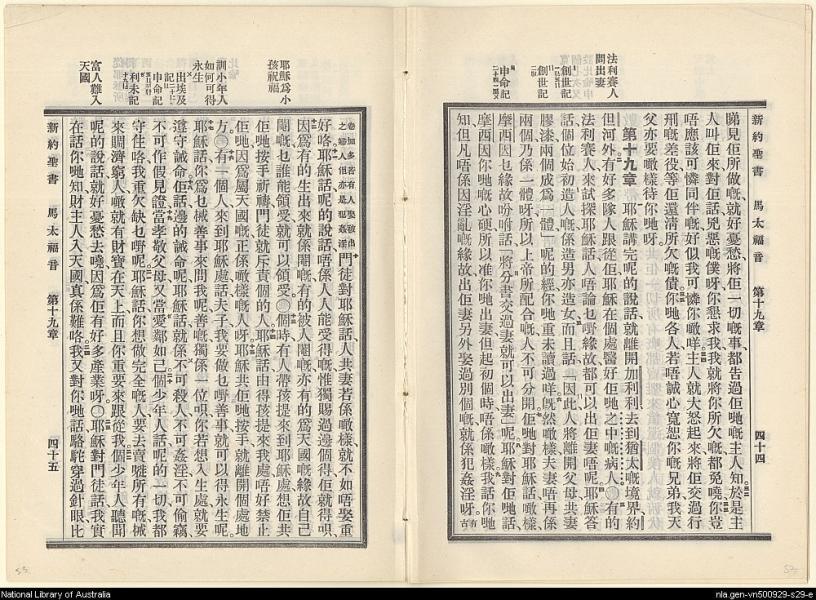 新約聖書 馬太福音 第十九章 四十四
睇見佢所做嘅就好憂愁將佢一切嘅事都告過佢哋嘅主人知於是主
人叫佢來對佢話兇惡嘅僕呀你懇求我我就將你所欠嘅都免曉你豈
唔應該可憐同伴嘅好似我可憐你嘅咩主人就大怒起來將佢交過行
刑嘅差役等佢還淸所欠嘅債你哋各人若唔誠心寬恕你嘅兄弟我天
父亦要噉樣待你哋呀
第十九章 耶穌講完呢的說話就離開加利利去到猶太嘅境界約
但河外有好多隊人跟從佢耶穌在個處醫好佢哋之中嘅病人〇有的
法利賽人來試探耶穌話人唔論乜嘢緣故都可以出佢妻唔呢耶穌答
話個位始初造人嘅係造男亦造女而且話因此人將離開父母共妻
膠漆兩個成爲一體呢的經你哋重未讀過咩旣然噉樣夫妻唔再係
兩個乃係一體呀所以上帝所配合嘅人不可分開佢哋對耶穌話噉樣
摩西因乜緣故吩咐話將分書交過妻就可以出妻呢耶穌對佢哋話
摩西因你哋嘅心硬所以准你哋出妻但起初個時唔係噉樣我話你哋
知但凡唔係因淫亂嘅緣故出佢妻另外娶過別個嘅就係犯姦淫呀有古
法利賽人
問出妻
創世記
創世記
申命記
卷加多若有人娶被出
之婦人佢亦是犯姦淫
門徒對耶穌話人共妻若係噉樣就不如唔娶重
好咯耶穌話呢的說話唔係人人能受得嘅惟獨賜過邊個得佢就得唄
因爲有的生出來就係閹嘅有的被人閹嘅亦有的爲天國嘅緣故自己
閹嘅乜誰能領受就可以領受〇個時有人帶孩提來到耶穌處想佢共
佢哋按手祈禱門徒就斥責個的人耶穌話由得孩提來我處唔好禁止
佢哋因爲屬天國嘅正係噉樣嘅人呀耶穌共佢哋按手就離開個處地
方〇有一個人來到耶穌處話夫子我要做乜嘢善事就可以得永生呢
耶穌話你爲乜械善事來問我呢善嘅獨係一位唄你若想入生處就要
遵守誡命佢話邊的誡命呢耶穌話就係不可殺人不可姦淫不可偷竊
不可作假見證當孝敬父母又當愛鄰如己個少年人話呢的一切我都
守住咯我重欠缺乜嘢呢耶穌話你想做完全嘅人要去賣嘥所有嘅械
來賙濟窮人噉就有財寶在天上而且你重要來跟從我個少年人聽聞
呢的說話就好憂愁去曉因爲佢有好多產業呀〇耶穌對門徒話我實
在話你哋知財主人入天國眞係難咯我又對你哋話駱駝穿過針眼比
新約聖書 馬太福音 第十九章 四十五
耶穌爲小
孩祝福
訓小年人
如何可得
永生
出埃及
記
申命記
利未記
富人難入
天國
National Library of Australia
nla.gen-vn500929-s29-e